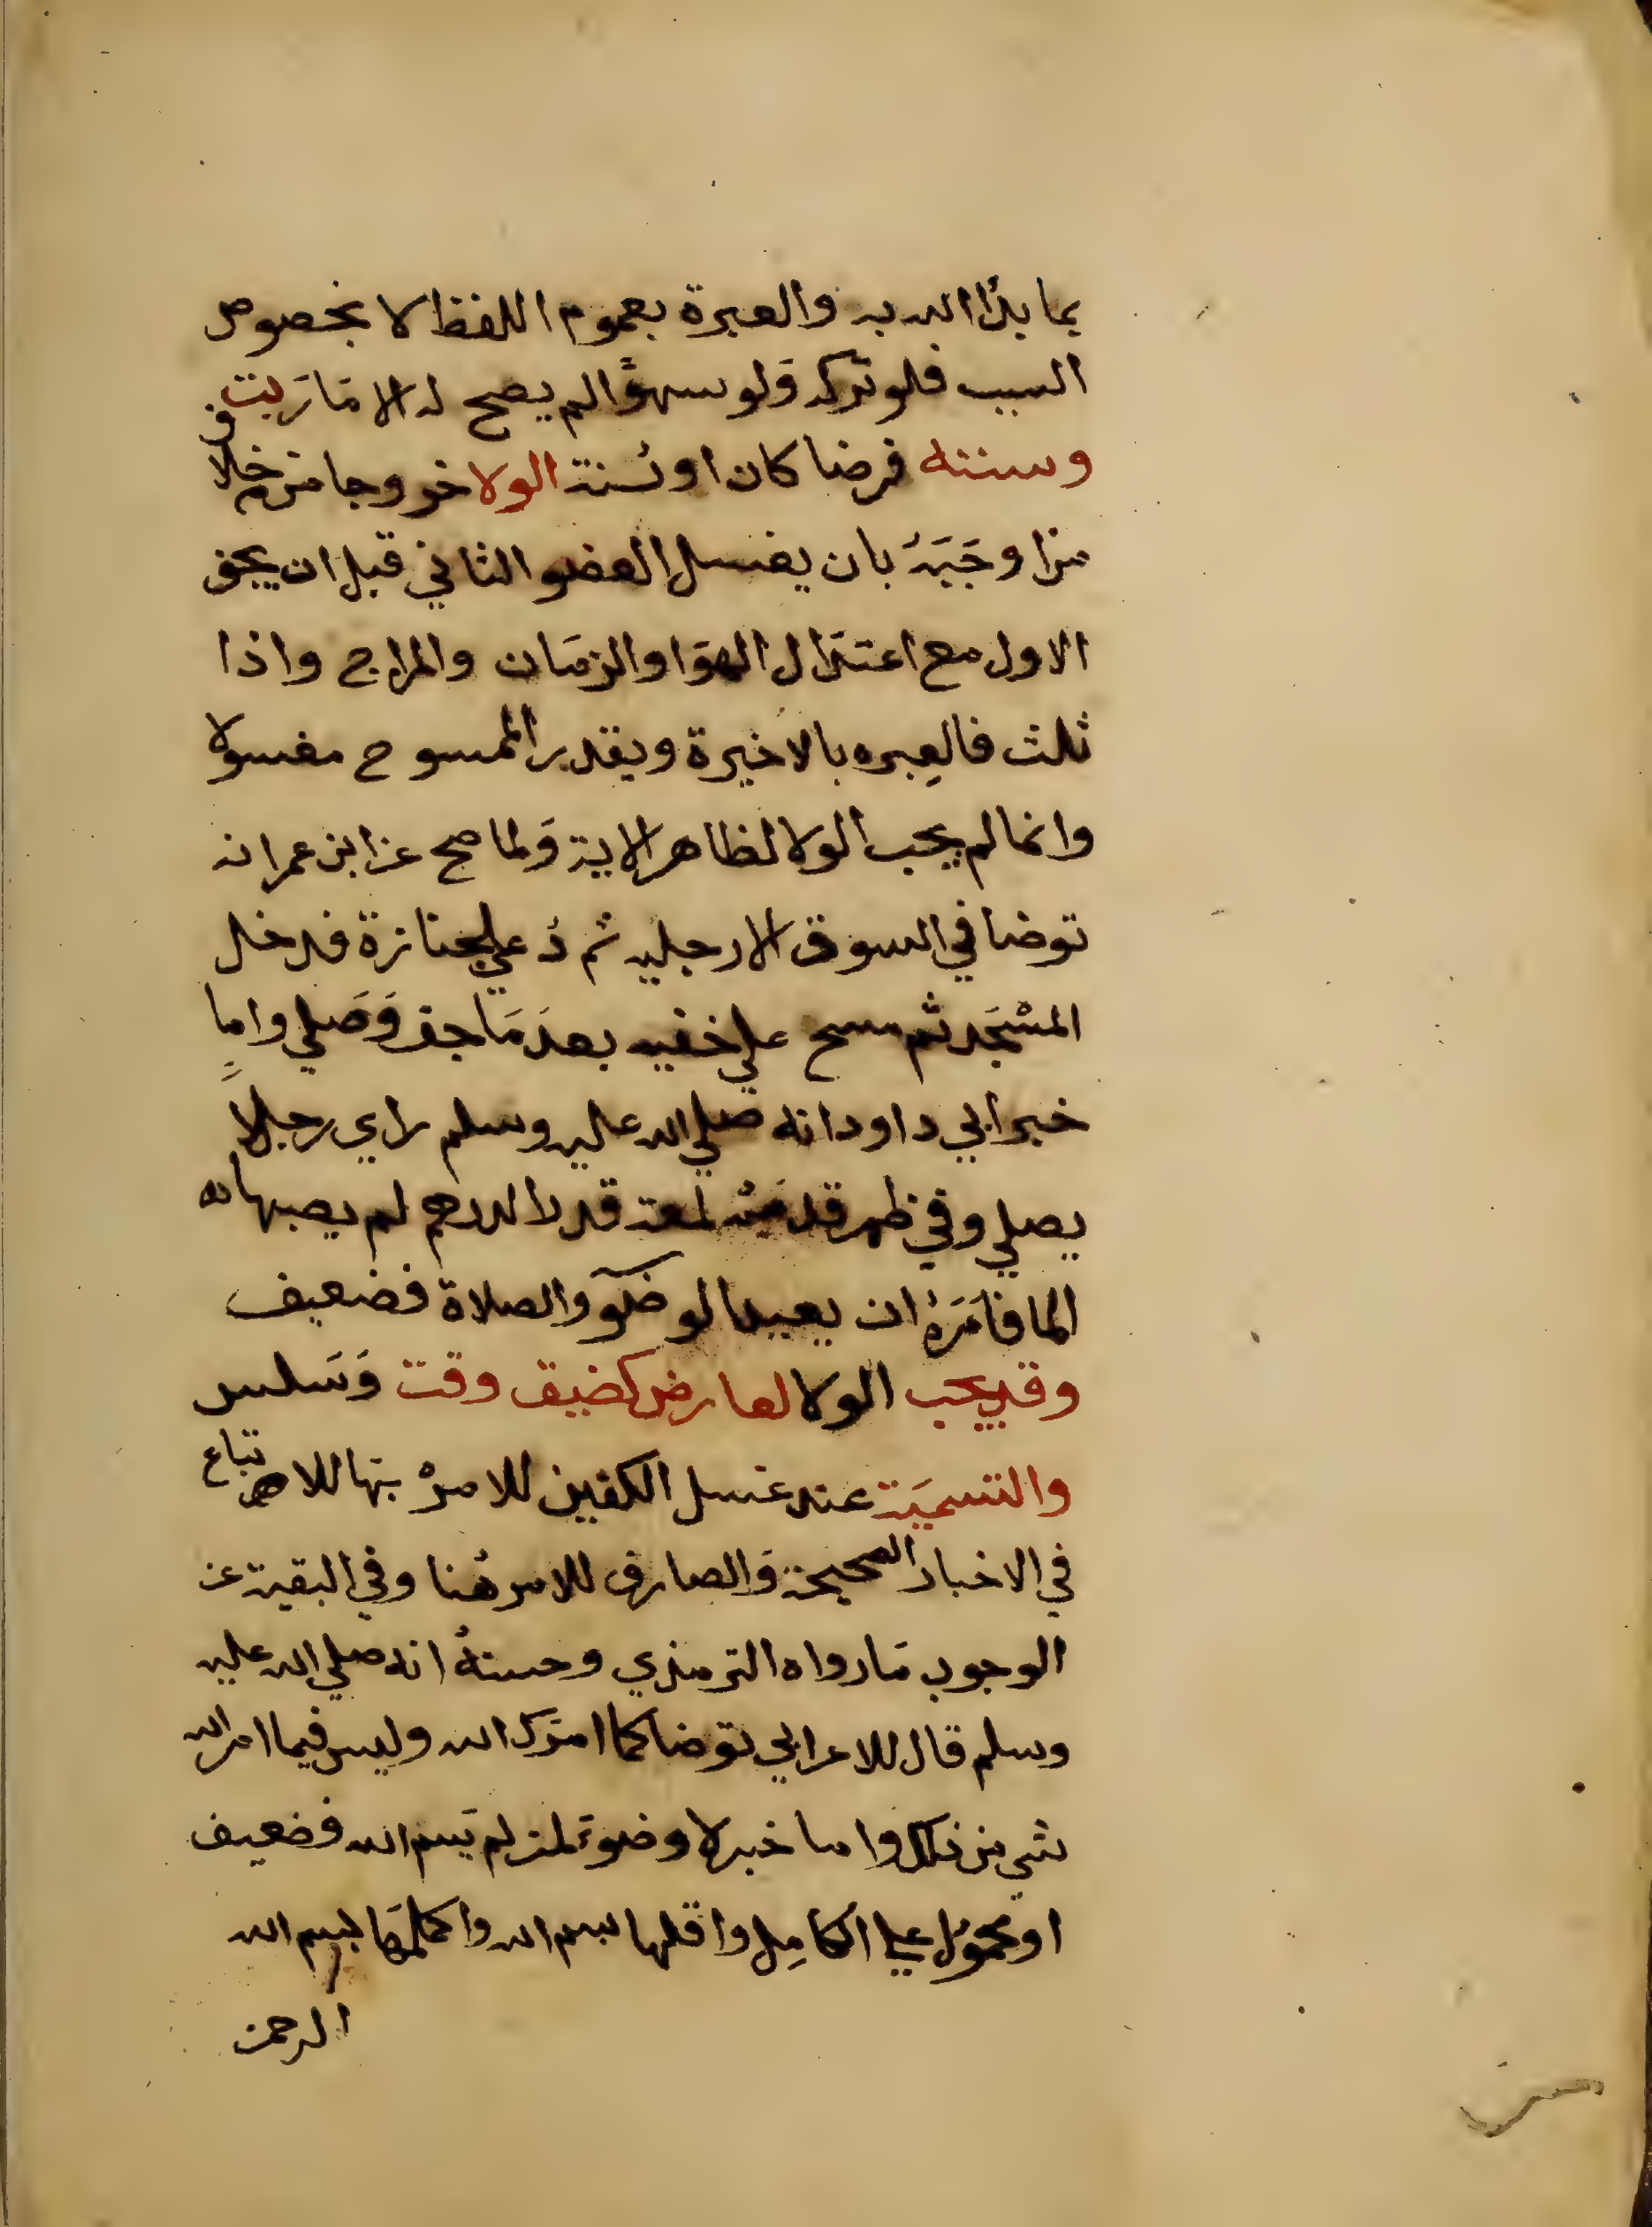 بما بدأ الله به والعبرة بعموم اللفظ لا بخصوص
السبب فلو تركه ولو سهوًا لم يصح له الا ما رتبت
وسننه فرضا كان او سنة الولا خروجا من خلاف
من اوجبه بان يغسل العضو الثاني قبل ان يجف
الاول مع اعتدال الهوا والزمان والمزاج واذا
ثلث فالعِبره بالاخيرة ويقدر الممسوح مغسولا
وانما لم يجب الولا لظاهر الاية ولما صح عن ابن عمر انه
توضا في السوق الا رجليه ثم دُعي لجنازة فدخل
المسْجد ثم مسح علي خفيه بعد ما جف وَصَلي واما
خبر ابي داود انه صلي الله عليه وسلم راي رجلاً
يصلي وفي ظهر قدمه لمعة قدر الدرهم لم يصبها
الما فامَرهُ ان يعيد الوضوَ والصلاة فضعيف
وقد يجب الولا لعارض كضيق وقت وَسَلس
والتسميَة عند غسل الكفين للامرْ بها للاتباع
في الاخبار الصحيحة وَالصارف للامر هُنا وفي البقية عن
الوجوب مَا رواه الترمذي وحسنهُ انه صلي الله عليه
وسلم قال للاعرابي توضا كما امَرَك الله وليس فيما امر الله
شي من ذلك واما خبر لا وضوءَ لمن لم يَسم الله فضعيف
او محموُل علي الكامِل واقلها بسم الله واكملهَا بسم الله
الرحمن